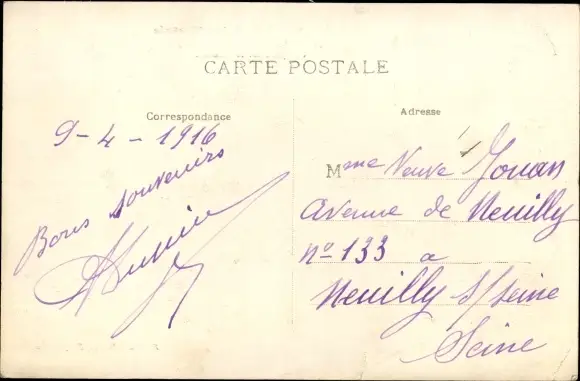 CARTE POSTALE
Correspondance
Adresse
9-4-1916
Bons souvenirs
Mme Veuve Jouan
Avenue de Neuilly
No 133 a
Neuilly s/Seine
Seine